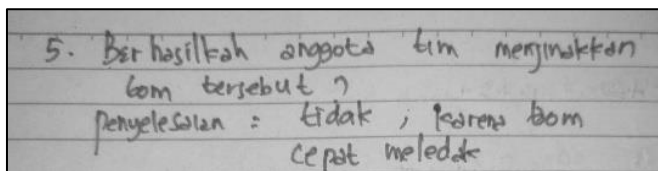 5. Berhasilkah anggota tim menjinakkan
bom tersebut ?
Penyelesaian = tidak ; karena bom
cepat meledak